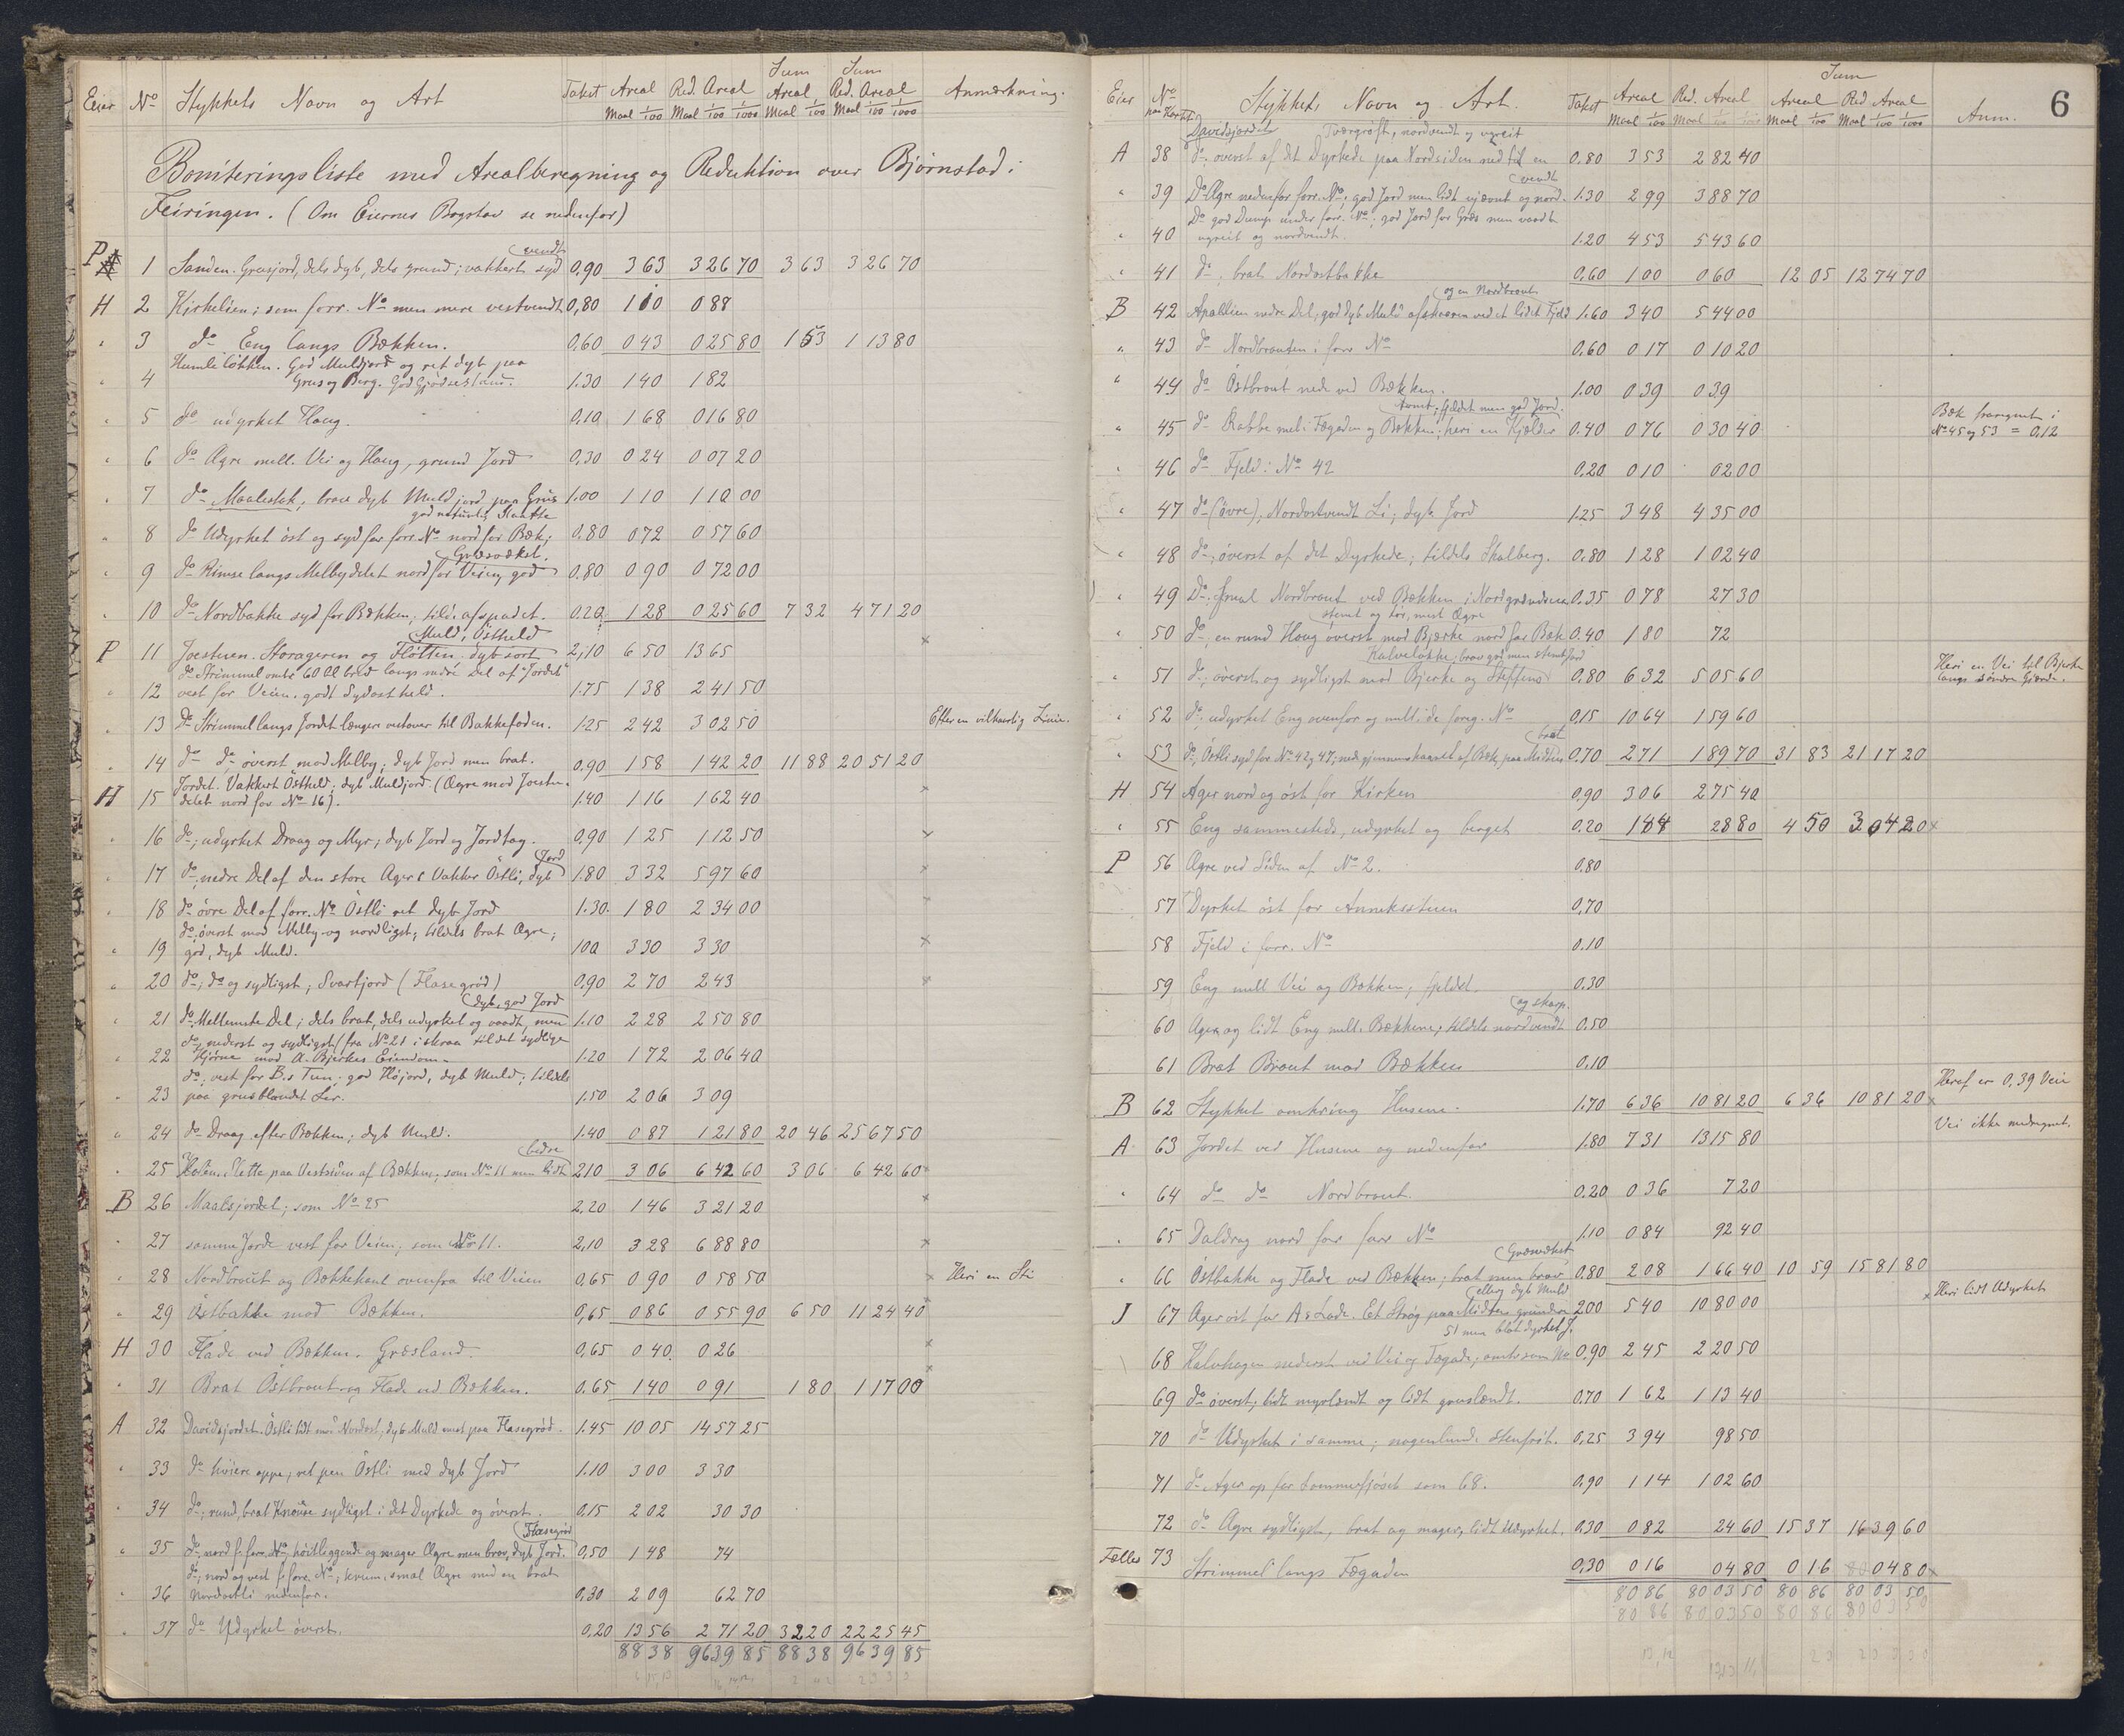 Eier No Stykkets Navn og Art Takst Areal Red. Areal Sum Areal Sum Red. Areal Anmærkning.
Maal 1/100 Maal 1/100 1/1000 Maal 1/100 Maal 1/100 1/1000
Boniteringsliste med Arealberegning og Reduktion over Bjørnstad i
Feiringen. (Om Eiernes Bogstav se nedenfor)
P 1 Sanden. Grusjord, dels dyb, dels grund; vakkert sydvendt 0,90 3 63 3 26 70 3 63 3 26 70
H 2 Kirkelien; som forr. No men mere vestvendt 0,80 1 10 0 88
" 3 do Eng langs Bækken. 0,60 0 43 0 25 80 1 53 1 13 80
" 4 Humleløkken. God Muldjord og ret dyb paa
Grus og Berg. 1.30 1 40 1 82
" 5 do udyrket Haug. 0,10 1 68 0 16 80
" 6 do Agre mell. Vei og Haug, grund Jord 0,30 0 24 0 07 20
" 7 do Maalestok, brav dyb Muldjord paa Grus 1.00 1 10 1 10 00
" 8 do Udyrket øst og syd for forr. No nord for Bæk; 0.80 0 72 0 57 60
" 9 do Rimse langs Melbydelet nord for Veien, god 0.80 0 90 0 72 00
" 10 do Nordbakke syd for Bækken; tild. afspadet. 0.20 1 28 0 25 60 7 32 4 71 20
P 11 Joestuen. Storageren og Fløtten. dyb sort Muld, Østheld 2,10 6 50 13 65
" 12 do Strimmel omtr 60 Al bred langs nedre Del af "Jordet"
vest for Veien. godt Sydostheld. 1.75 1 38 2 41 50
" 13 do Strimmel langs Jordet længere vestover til Bakkefoden. 1.25 2 42 3 02 50 Efter en vilkaarlig Linie.
" 14 do do øverst mod Melby; dyb Jord men brat. 0.90 1 58 1 42 20 11 88 20 51 20
H 15 Jordet. Vakkert Østheld; dyb Muldjord (Agre mod Joestu-
delet nord for No 16). 1.40 1 16 1 62 40
" 16 do; udyrket Draag og Myr; dyb Jord og Jordtag. 0,90 1 25 1 12 50
" 17 do; nedre Del af den store Ager. Vakker Østli, dyb Jord 1.80 3 32 5 97 60
" 18 do øvre Del af forr. No Østli ret dyb Jord 1.30. 1 80 2 34 00
" 19 do; øverst mod Melby og nordligst; tildels brat Agre;
god, dyb Muld. 1 00 3 30 3 30
" 20 do; do og sydligst; Svartjord (Flasegrød) 0,90 2 70 2 43
" 21 do Mellemste Del; dels brat, dels udyrket og vaadt, men dyb, god Jord 1.10 2 28 2 50 80
" 22 do, nederst og sydligst fra No 21 i skraa til det sydlige
Hjørne mod A. Bjerkes Eiendom. 1.20 1 72 2 06 40
" 23 do; vest for B.s Tun; god Høijord, dyb Muld; tildels
paa grusblandet Ler. 1.50 2 06 3 09
" 24 do Draag efter Bækken; dyb Muld. 1.40 0 87 1 21 80 20 46 25 67 50
" 25 Holen. Tette paa Vestsiden af Bækken; som No 11 men lidt bedre 2.10 3 06 6 42 60 3 06 6 42 60
B 26 Maalsjordet; som No 25 2,20 1 46 3 21 20
" 27 samme Jorde vest for Veien; som No 11. 2,10 3 28 6 88 80
" 28 Nordbrout og Bækkekant ovenfra til Veien 0,65 0 90 0 58 50 Heri en Sti
" 29 Østbakke mod Bækken. 0,65 0 86 0 55 90 6 50 11 24 40
H 30 Flade ved Bækken. Græsland. 0,65 0 40 0 26
" 31 Brat Østbrout og Flade ved Bækken. 0.65 1 40 0 91 1 80 1 17 00
A 32 Davidsjordet. Østli lidt mod Nordost, dyb Muld mest paa Flasegrød. 1.45 10 05 14 57 25
" 33 do høiere oppe; ret pen Østli med dyb Jord 1.10 3 00 3 30
" 34 do; rund, brat Knause sydligst i det Dyrkede og øverst. 0,15 2 02 30 30
" 35 do; nord f. forr. No; høitliggende og mager Agre men brav, dyb Jord. Flasegrød 0,50 1 48 74
" 36 do; nord og vest f. forr. No; krum, smal Agre med en brat
Nordostli nedenfor. 0,30 2 09 62 70
" 37 do Udyrket øverst. 0,20 13 56 2 71 20 32 20 22 25 45
88 38 96 39 85 88 38 96 39 85
6
Eier No paa Kartet Stykkets Navn og Art. Takst Areal Red. Areal Sum Areal Red Areal Anm.
Maal 1/100 Maal 1/100 1/1000 Maal 1/100 Maal 1/100 1/1000
Davidsjordet Tværgrøft, nordvendt og ugreit
A 38 do. øverst af det Dyrkede paa Nordsiden ned til en 0.80 3 53 2 82 40
" 39 Do Agre nedenfor forr. No; god Jord men lidt ujævnt og nordvendt 1.30 2 99 3 88 70
" 40 Do god Dump under forr. No; god Jord for Græs men vaadt
ugreit og nordvendt. 1.20 4 53 5 43 60
" 41 do; brat Nordostbakke 0.60 1 00 0 60 12 05 12 74 70
B 42 Apallien nedre Del; god dyb Muld afskaaren ved et lidet Fjeld og en Nordbrout 1.60 3 40 5 44 00
" 43 do Nordbrouten i forr No 0.60 0 17 0 10 20
" 44 do Østbrout nede ved Bækken. 1.00 0 39 0 39
" 45 do Rabbe mel. Fægaden og Bækken; heri en Kjelder 0.40 0 76 0 30 40 Bæk fraregnet i
No 45 og 53 = 0,12
" 46 do Fjeld i No 42 0.20 0 10 02 00
" 47 do (øvre); Nordostvendt Li; dyb Jord 1.25 3 48 4 35 00
" 48 do; øverst af det Dyrkede; tildels Skalberg. 0.80 1 28 1 02 40
" 49 Do. Smal Nordbrout ved Bækken i Nordgrændsen 0.35 0 78 27 30
" 50 do; en rund Haug øverst mod Bjerke nord for Bæk 0.40 1 80 72
Kalveløkke, brav god men stenet Jord
" 51 do; øverst og sydligst mod Bjerke og Steffens 0.80 6 32 5 05 60 Heri en Vei til Bjerke
langs søndre Gjærde.
" 52 do; udyrket Eng ovenfor og mell. de foreg. No 0.15 10 64 1 59 60
" 53 do, Østli syd for No 42 og 47; gjennemskaaret af Bæk paa Midten 0.70 2 71 1 89 70 31 83 21 17 20
H 54 Ager nord og øst for Kirken 0.90 3 06 2 75 40
" 55 Eng sammesteds, udyrket og berget 0.20 1 44 28 80 4 50 3 04 20
P 56 Agre ved Siden af No 2. 0.80
57 Dyrket øst for Anneksstuen 0,70
58 Fjeld i forr. No 0.10
59 Eng mell Vei og Bækken; fjeldet. 0.30
60 Agre og lidt Eng mell. Bækkene; tildels nordvendt og skarp. 0.50
61 Brat Brout mod Bækken 0.10
B 62 Stykket omkring Husene. 1.70 6 36 10 81 20 6 36 10 81 20 Heraf er 0,39 Vei
A 63 Jordet ved Husene og nedenfor 1.80 7 31 13 15 80 Vei ikke medregnet.
" 64 do do Nordbrout. 0.20 0 36 7 20
" 65 Daldrag nord for forr No 1.10 0 84 92 40
" 66 Østbakke og Flade ved Bækken; brat men brav Græsvækst 0.80 2 08 1 66 40 10 59 15 81 80
J 67 Ager øst for A.s Lade. Et Strøg paa Midten grundere ellers dyb Muld 2.00 5 40 10 80 00 Heri lidt Udyrket
68 Kalvhagen nederst ved Vei og Fægade; omtr. som No 51 men blot dyrket J. 0.90 2 45 2 20 50
69 do øverst; lidt myrlændt og lidt gruslændt. 0.70 1 62 1 13 40
70 do Udyrket i samme; nogenlunde stenfrit. 0,25 3 94 98 50
71 do Ager op for Sommerfjøset som 68. 0.90 1 14 1 02 60
72 do Agre sydligst, brat og mager, lidt Udyrket. 0.30 0 82 24 60 15 37 16 39 60
Fælles 73 Strimmel langs Fægaden 0,30 0 16 04 80 0 16 04 80
80 86 80 03 50 80 86 80 03 50
80 86 80 03 50 80 86 80 03 50